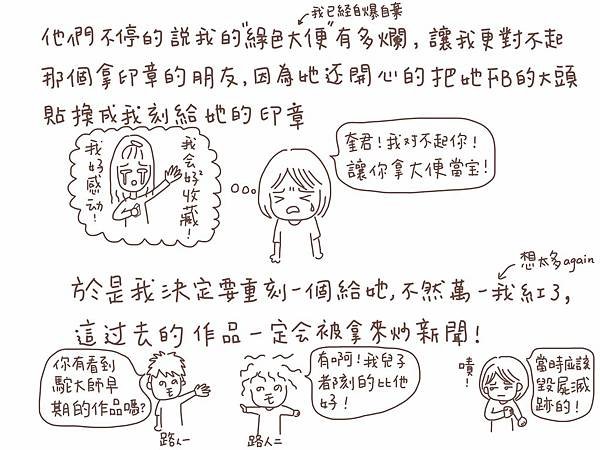 我已經自爆自棄
他們不停的說我的"綠色大便"有多爛，讓我更對不起
那個拿印章的朋友，因為她还開心的把她FB的大頭
貼換成我刻給她的印章
我会好好收藏！
我好感动！
奎君！我对不起你！
讓你拿大便當宝！
想太多again
於是我決定要重刻一個給她，不然萬一我紅了，
這过去的作品一定会被拿來炒新聞！
你有看到
駝大師早
期的作品嗎？
路人一
有啊！我兒子
都刻的比他
好！
路人二
嘖！
當時应該
毀屍滅
跡的！